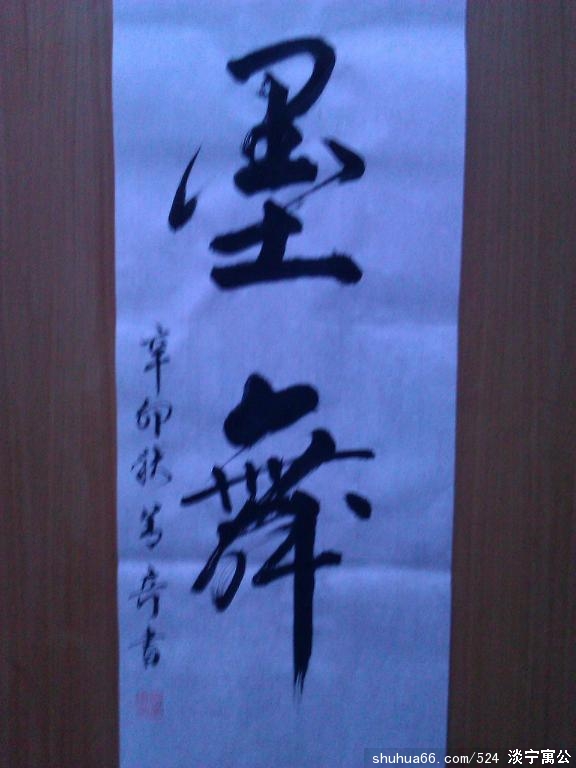 墨舞
辛卯秋
书
shuhua66.com/524 淡宁寓公